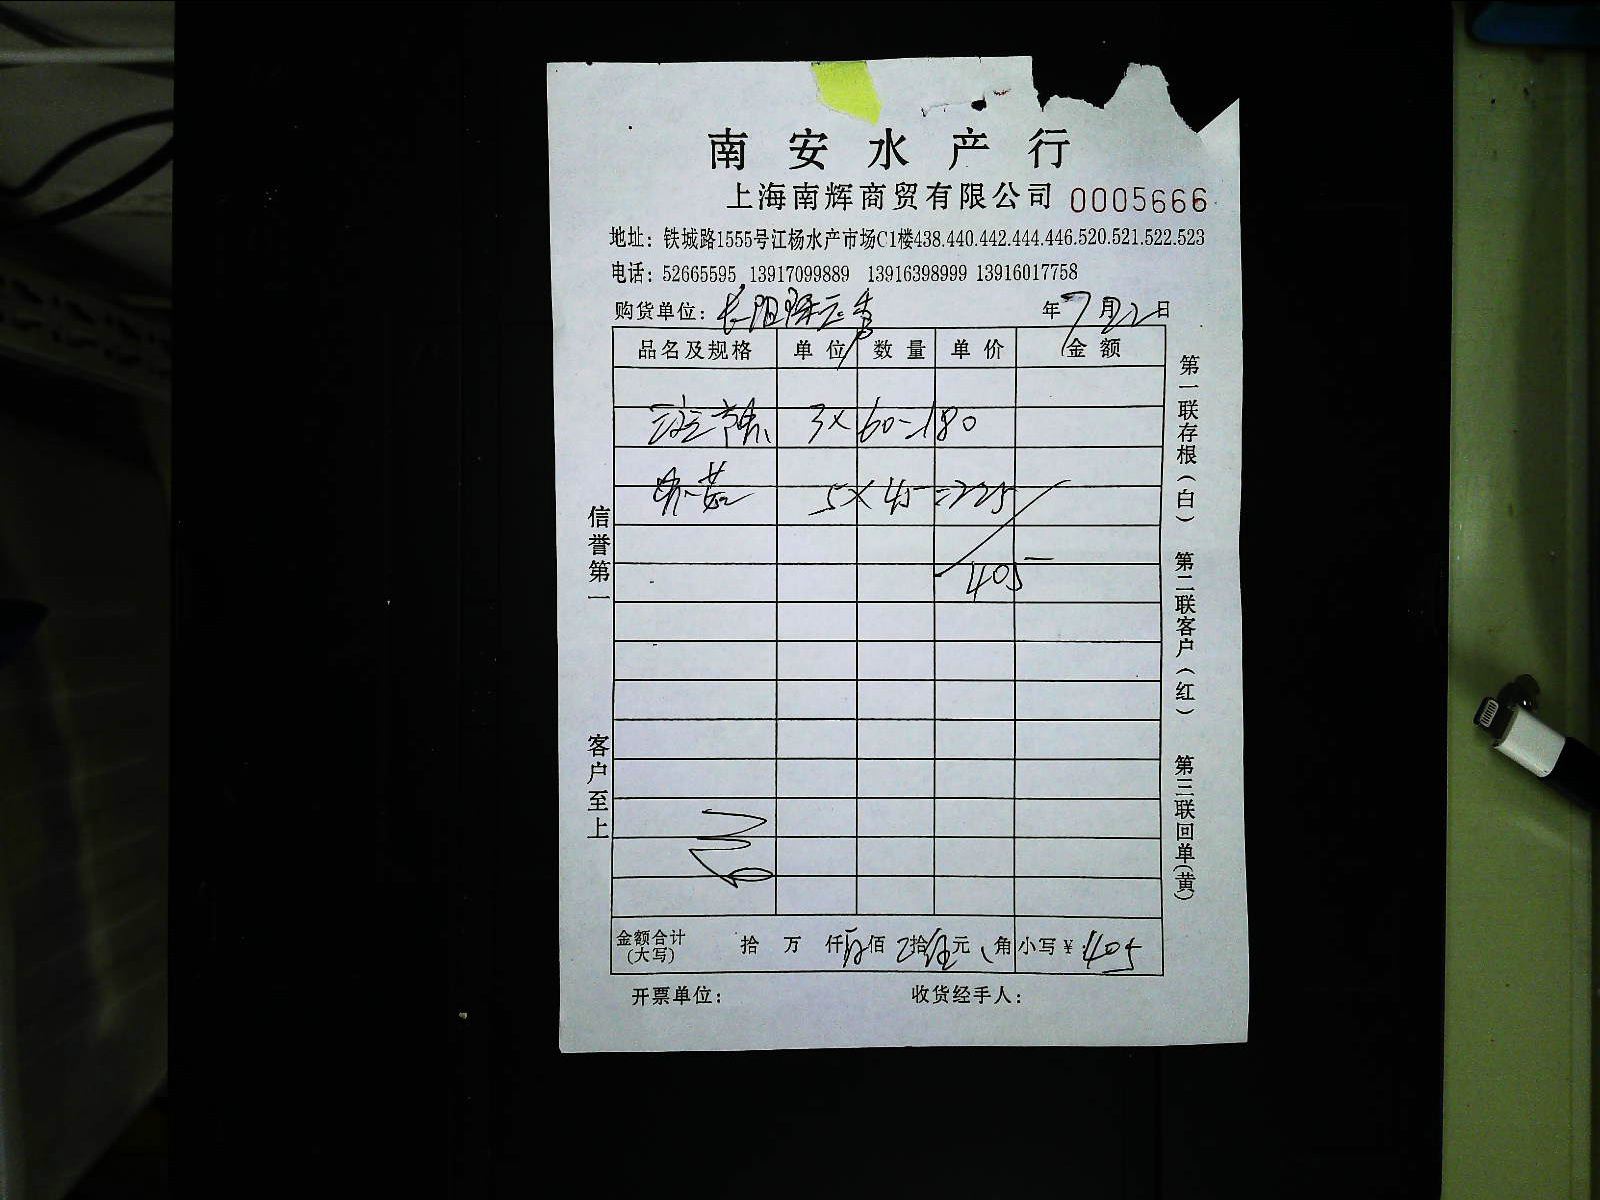 南安水产行
上海南辉商贸有限公司 0005666
地址：铁城路1555号江杨水产市场C1楼438.440.442.444.446.520.521.522.523
电话：52665595 13917099889 13916398999 13916017758
购货单位：长阳 年7月22日
品名及规格 单位 数量 单价 金额
3×60=180
5×45=225
405
金额合计(大写) 拾 万 仟 佰 拾伍元 角 小写￥:405
开票单位： 收货经手人：
信誉第一 客户至上
第一联存根(白) 第二联客户(红) 第三联回单(黄)